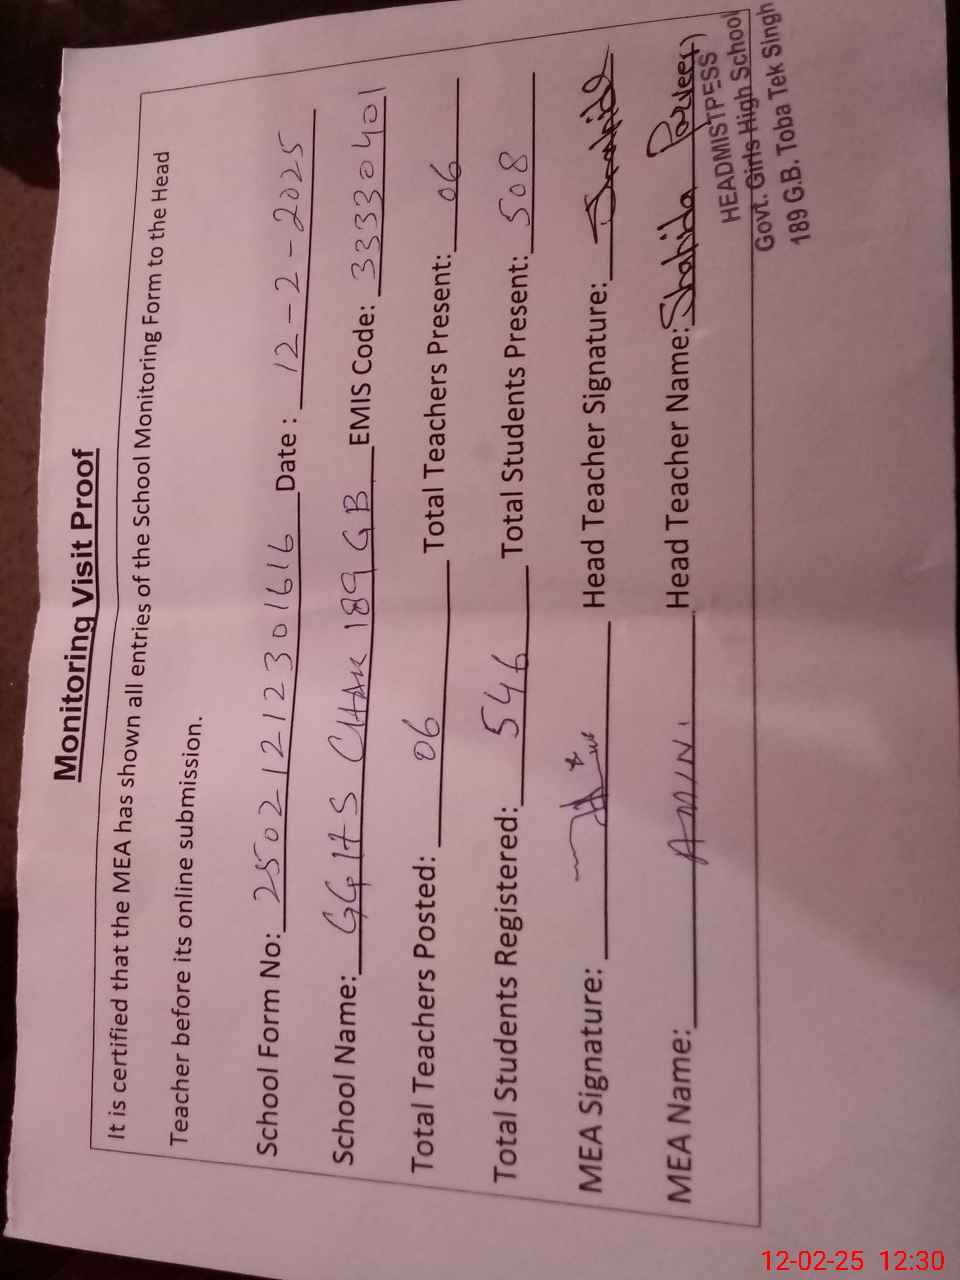 Monitoring Visit Proof
It is certified that the MEA has shown all entries of the School Monitoring Form to the Head
Teacher before its online submission.
School Form No: 25021212301616 Date : 12-2-2025
School Name: GGHS CHAK 189 GB EMIS Code: 33330401
Total Teachers Posted: 06 Total Teachers Present: 06
Total Students Registered: 546 Total Students Present: 508
MEA Signature: Head Teacher Signature:
MEA Name: AMIN. Head Teacher Name: Shahida Parveen
HEADMISTPESS
Govt. Girls High School
189 G.B. Toba Tek Singh
12-02-25 12:30